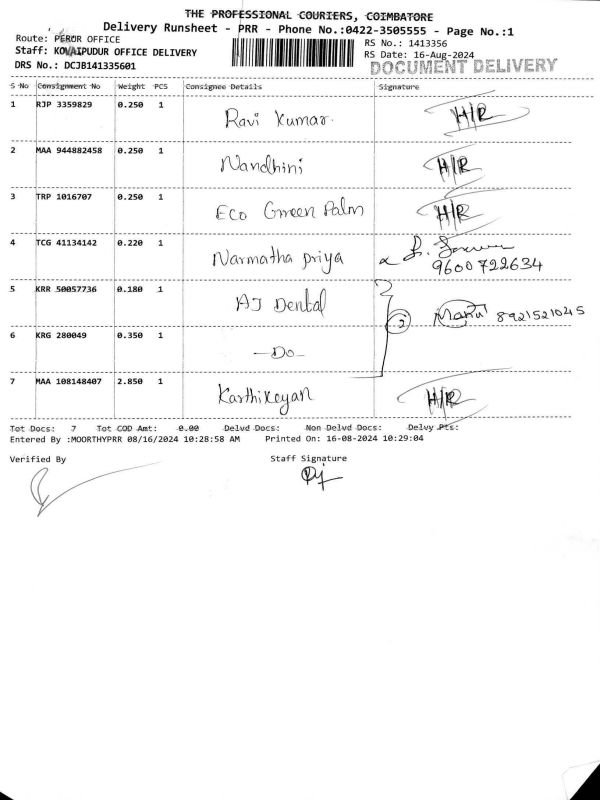 THE PROFESSIONAL COURIERS, COIMBATORE
Delivery Runsheet - PRR - Phone No.:0422-3505555 - Page No.:1
Route: PEROR OFFICE
RS No.: 1413356
Staff: KOVAIPUDUR OFFICE DELIVERY
RS Date: 16-Aug-2024
DRS No.: DCJB141335601
DOCUMENT DELIVERY
S No Consignment No Weight PCS Consignee Details Signature
1 RJP 3359829 0.250 1 Ravi Kumar. H/R
2 MAA 944882458 0.250 1 Nandhini H/R
3 TRP 1016707 0.250 1 Eco Green Palm H/R
4 TCG 41134142 0.220 1 Narmatha priya
9600722634
5 KRR 50057736 0.180 1 AJ Dental 2 8921521045
6 KRG 280049 0.350 1 —Do—
7 MAA 108148407 2.850 1 Karthikeyan H/R
Tot Docs: 7 Tot COD Amt: 0.00 Delvd Docs: Non Delvd Docs: Delvy Pts:
Entered By :MOORTHYPRR 08/16/2024 10:28:58 AM Printed On: 16-08-2024 10:29:04
Verified By Staff Signature